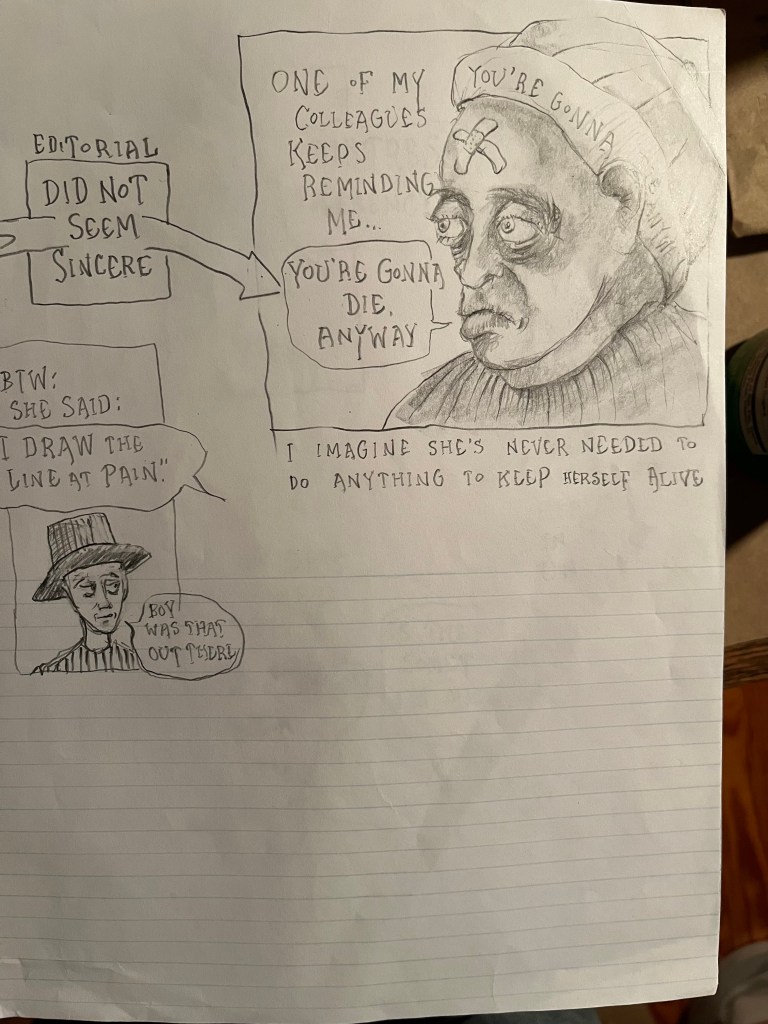 EDITORIAL
DID NOT
SEEM
SINCERE
ONE OF MY
COLLEAGUES
KEEPS
REMINDING
ME...
YOU'RE GONNA
DIE,
ANYWAY
YOU'RE GONNA
I IMAGINE SHE'S NEVER NEEDED TO
DO ANYTHING TO KEEP HERSELF ALIVE
BTW:
SHE SAID:
I DRAW THE
LINE AT PAIN."
BOY
WAS THAT
OUT THERE